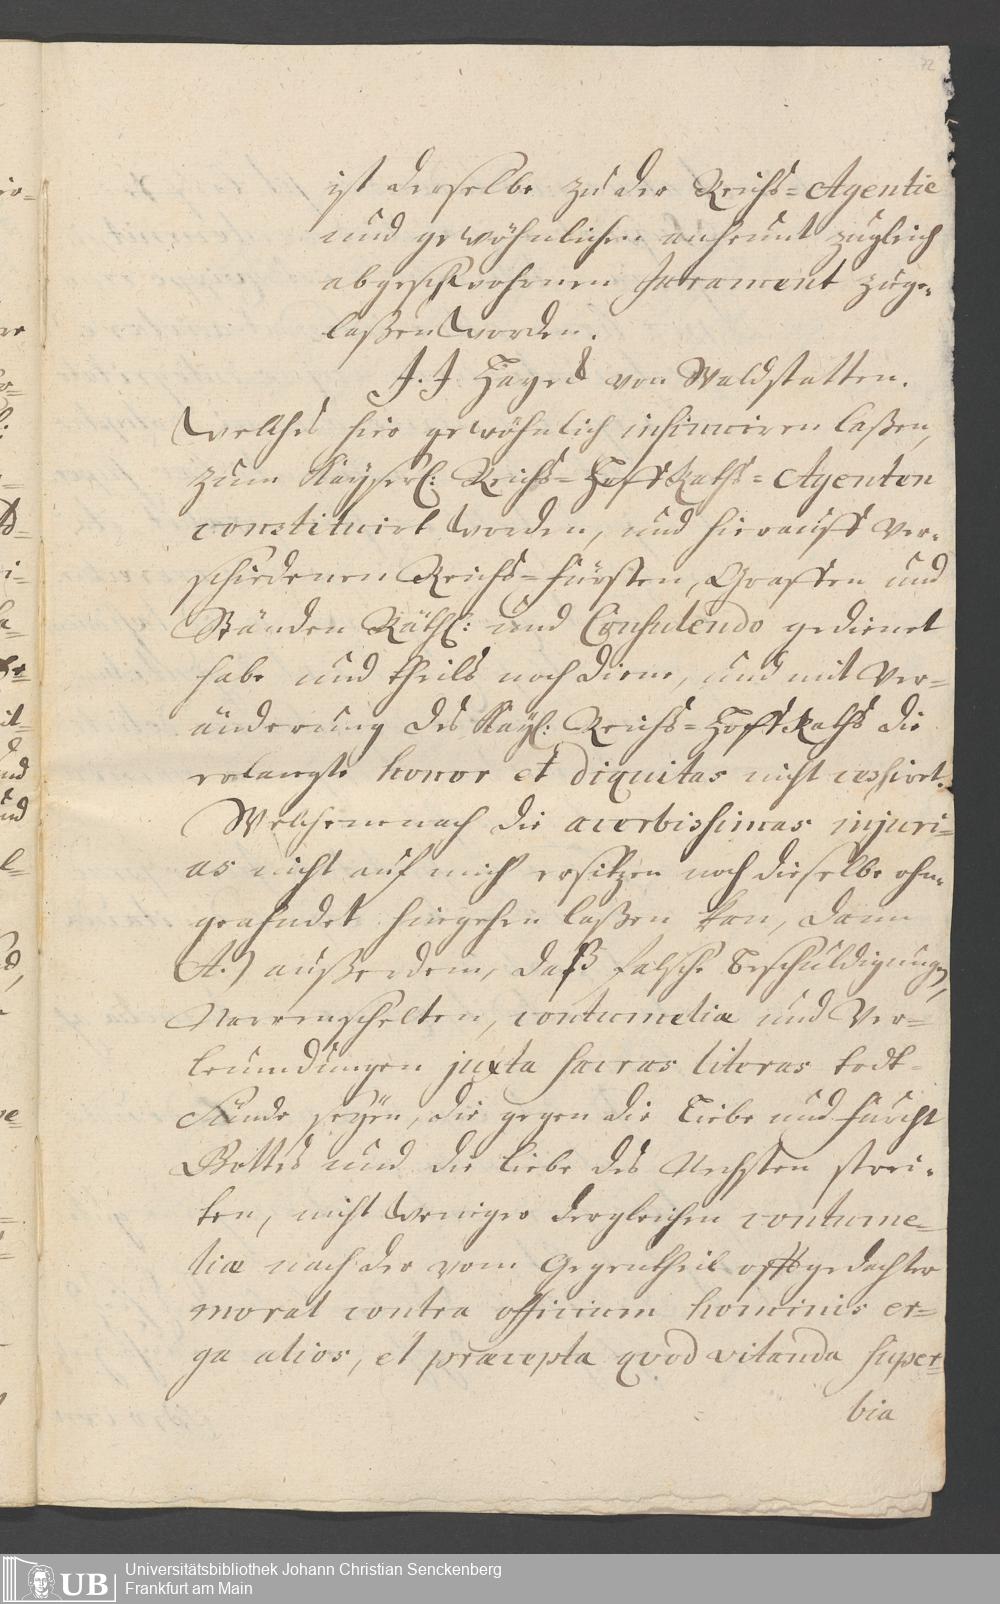 72
ist derselbe zu der Reichs-Agentie
und gewöhnlichen anheunt zugleich
abgeschwohrnen Jurament zuge-
laßen worden.
J. J. Hayeck von Waldstatten.
Welches hier gewöhnlich insinuiren laßen,
zum Kayserl: Reichs-HoffRaths-Agenten
constituirt worden, und hierauff ver-
schiedenen Reichs-Fürsten, Graffen und
Ständen Räthl: und Consulendo gedienet
habe und theils noch diene, und mit Ver-
änderung des Kayl: Reichs-HoffRaths die
erlangte honor et dignitas nicht cessiret.
Welchemnach die acerbissimas injuri-
as nicht auf mich ersitzen noch dieselbe ohn-
geahndet hingehen laßen kan, dann
A.) außerdem, daß falsche Beschuldigungen,
Narrenschelten, contumeliæ und Ver-
leumdungen juxta sacras literas todt-
Sünde seyen, die gegen die Liebe und Furcht
Gottes und die Liebe des Nechsten strei-
ten, nicht weniger dergleichen contume-
liæ nach der vom Gegentheil offtgedachter
moral contra officium hominis er-
ga alios, et præcepta quod vitanda super-
bia
Universitätsbibliothek Johann Christian Senckenberg
Frankfurt am Main
UB